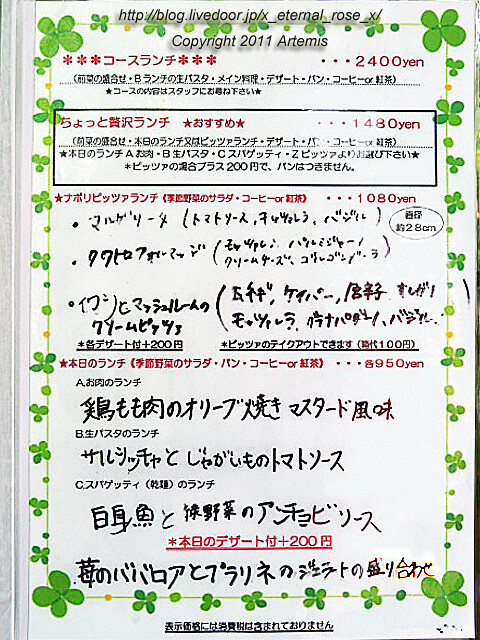 http://blog.livedoor.jp/x_eternal_rose_x/
Copyright 2011 Artemis
＊＊＊コースランチ＊＊＊ ・・・2400yen
（前菜の盛合せ・Bランチの生パスタ・メイン料理・デザート・パン・コーヒーor紅茶）
★コースの内容はスタッフにお尋ね下さい★
ちょっと贅沢ランチ ★おすすめ★ ・・・1480yen
（前菜の盛合せ・本日のランチ又はピッツァランチ・デザート・パン・コーヒーor紅茶）
★本日のランチAお肉・B生パスタ・Cスパゲッティ・Zピッツァよりお選び下さい★
＊ピッツァの場合プラス200円で、パンはつきません。
★ナポリピッツァランチ《季節野菜のサラダ・コーヒーor紅茶》 ・・・1080yen
・マルゲリータ（トマトソース、モッツァレラ、バジル）
直径
約28cm
・クワトロフォルマッジ（モッツァレラ、パルミジャーノ
クリームチーズ、ゴルゴンゾーラ）
・イワシとマッシュルームの
クリームピッツァ
（玉ネギ、ケイパー、唐辛子
モッツァレラ、グラナパダーノ、バジル）
＊各デザート付＋200円
＊ピッツァのテイクアウトできます（箱代100円）
★本日のランチ《季節野菜のサラダ・パン・コーヒーor紅茶》 ・・・各950yen
A.お肉のランチ
鶏もも肉のオリーブ焼き マスタード風味
B.生パスタのランチ
サルシッチャとじゃがいものトマトソース
C.スパゲッティ（乾麺）のランチ
白身魚と 野菜のアンチョビソース
＊本日のデザート付＋200円
苺のババロアとプラリネのジェラートの盛り合わせ
表示価格には消費税は含まれておりません